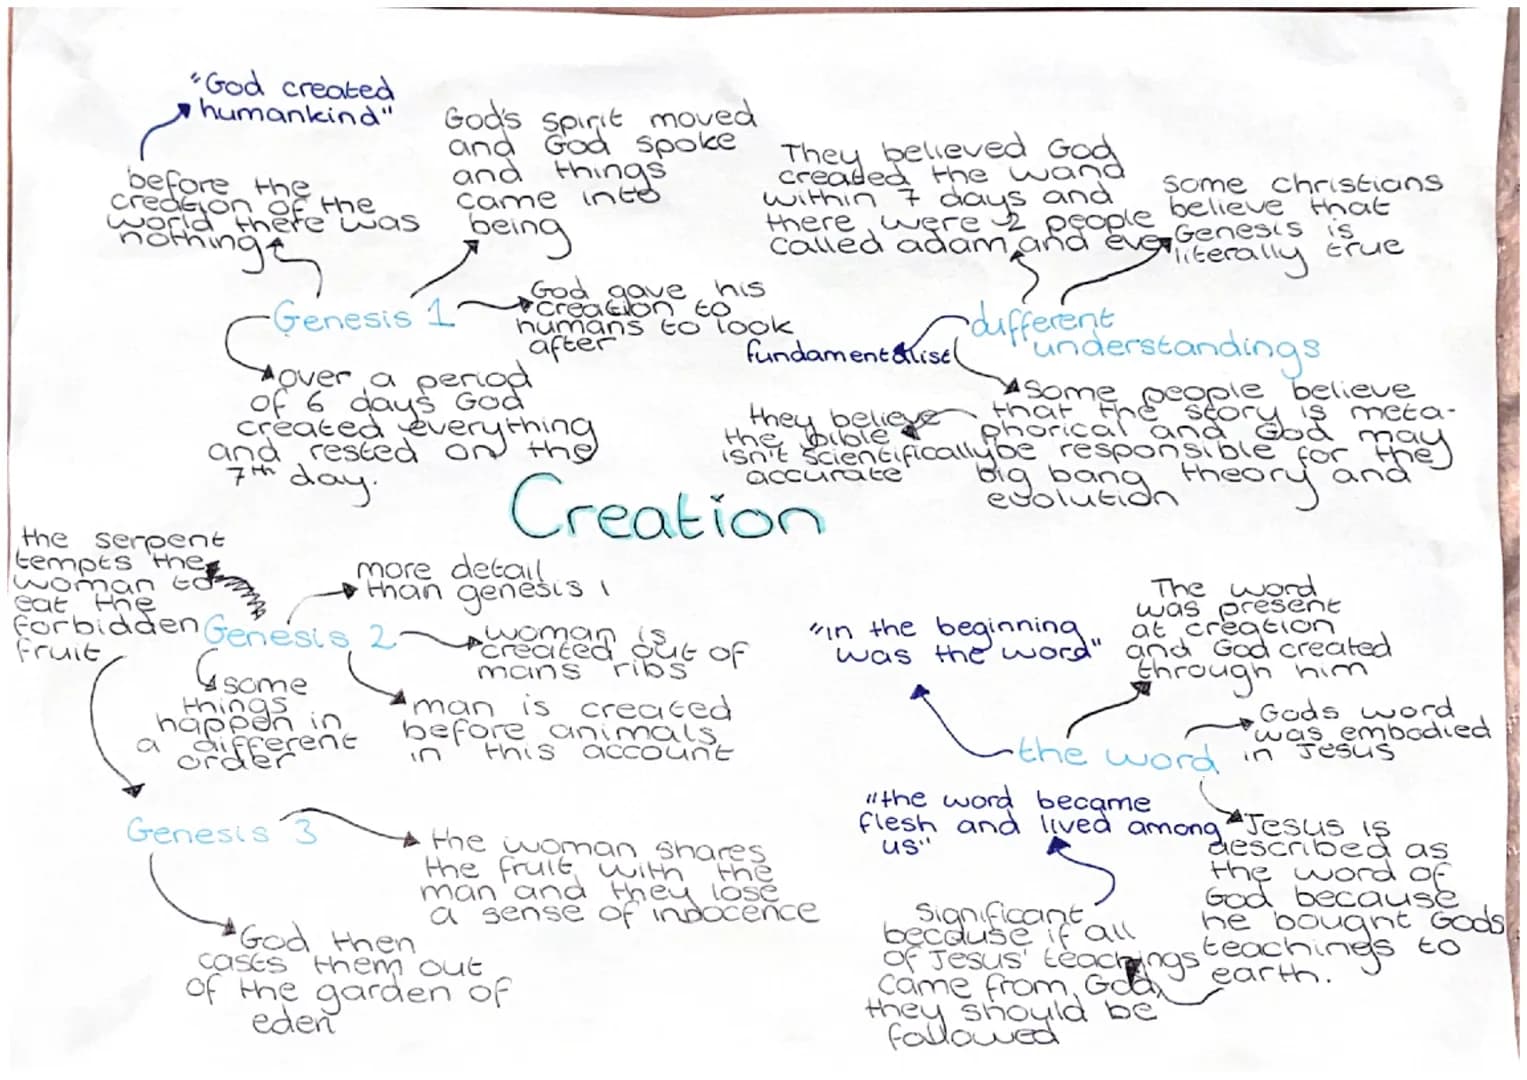 "God created
humankind"
before the
creation of the
world there was
nothing
God's spirit moved
and God spoke
and things
came into
being
Genesis 1
God gave his
creation to
humans to look
after
over a period
of 6 days God
created everything
and rested on the
7th day.
They believed God
created the wand
within 7 days and
there were 2 people
called adam and eve
some christians
believe that
Genesis is
literally true
different
understandings
fundamentalist
they believe
the bible
isn't scientifically
accurate
some people believe
that the story is meta-
phorical and God may
be responsible for the
big bang theory and
evolution
Creation
the serpent
tempts the
woman to
eat the
forbidden
fruit
more detail
than genesis 1
Genesis 2
woman is
created out of
mans ribs
some
things
happen in
a different
order
man is created
before animals
in this account
Genesis 3
the woman shares
the fruit with the
man and they lose
a sense of innocence
God then
casts them out
of the garden of
eden
"in the beginning
was the word"
The word
was present
at creation
and God created
through him
the word
Gods word
was embodied
in Jesus
"the word became
flesh and lived among
us"
Jesus is
described as
the word of
God because
he bought Gods
teachings to
earth.
Significant
because if all
of Jesus' teachings
came from God,
they should be
followed